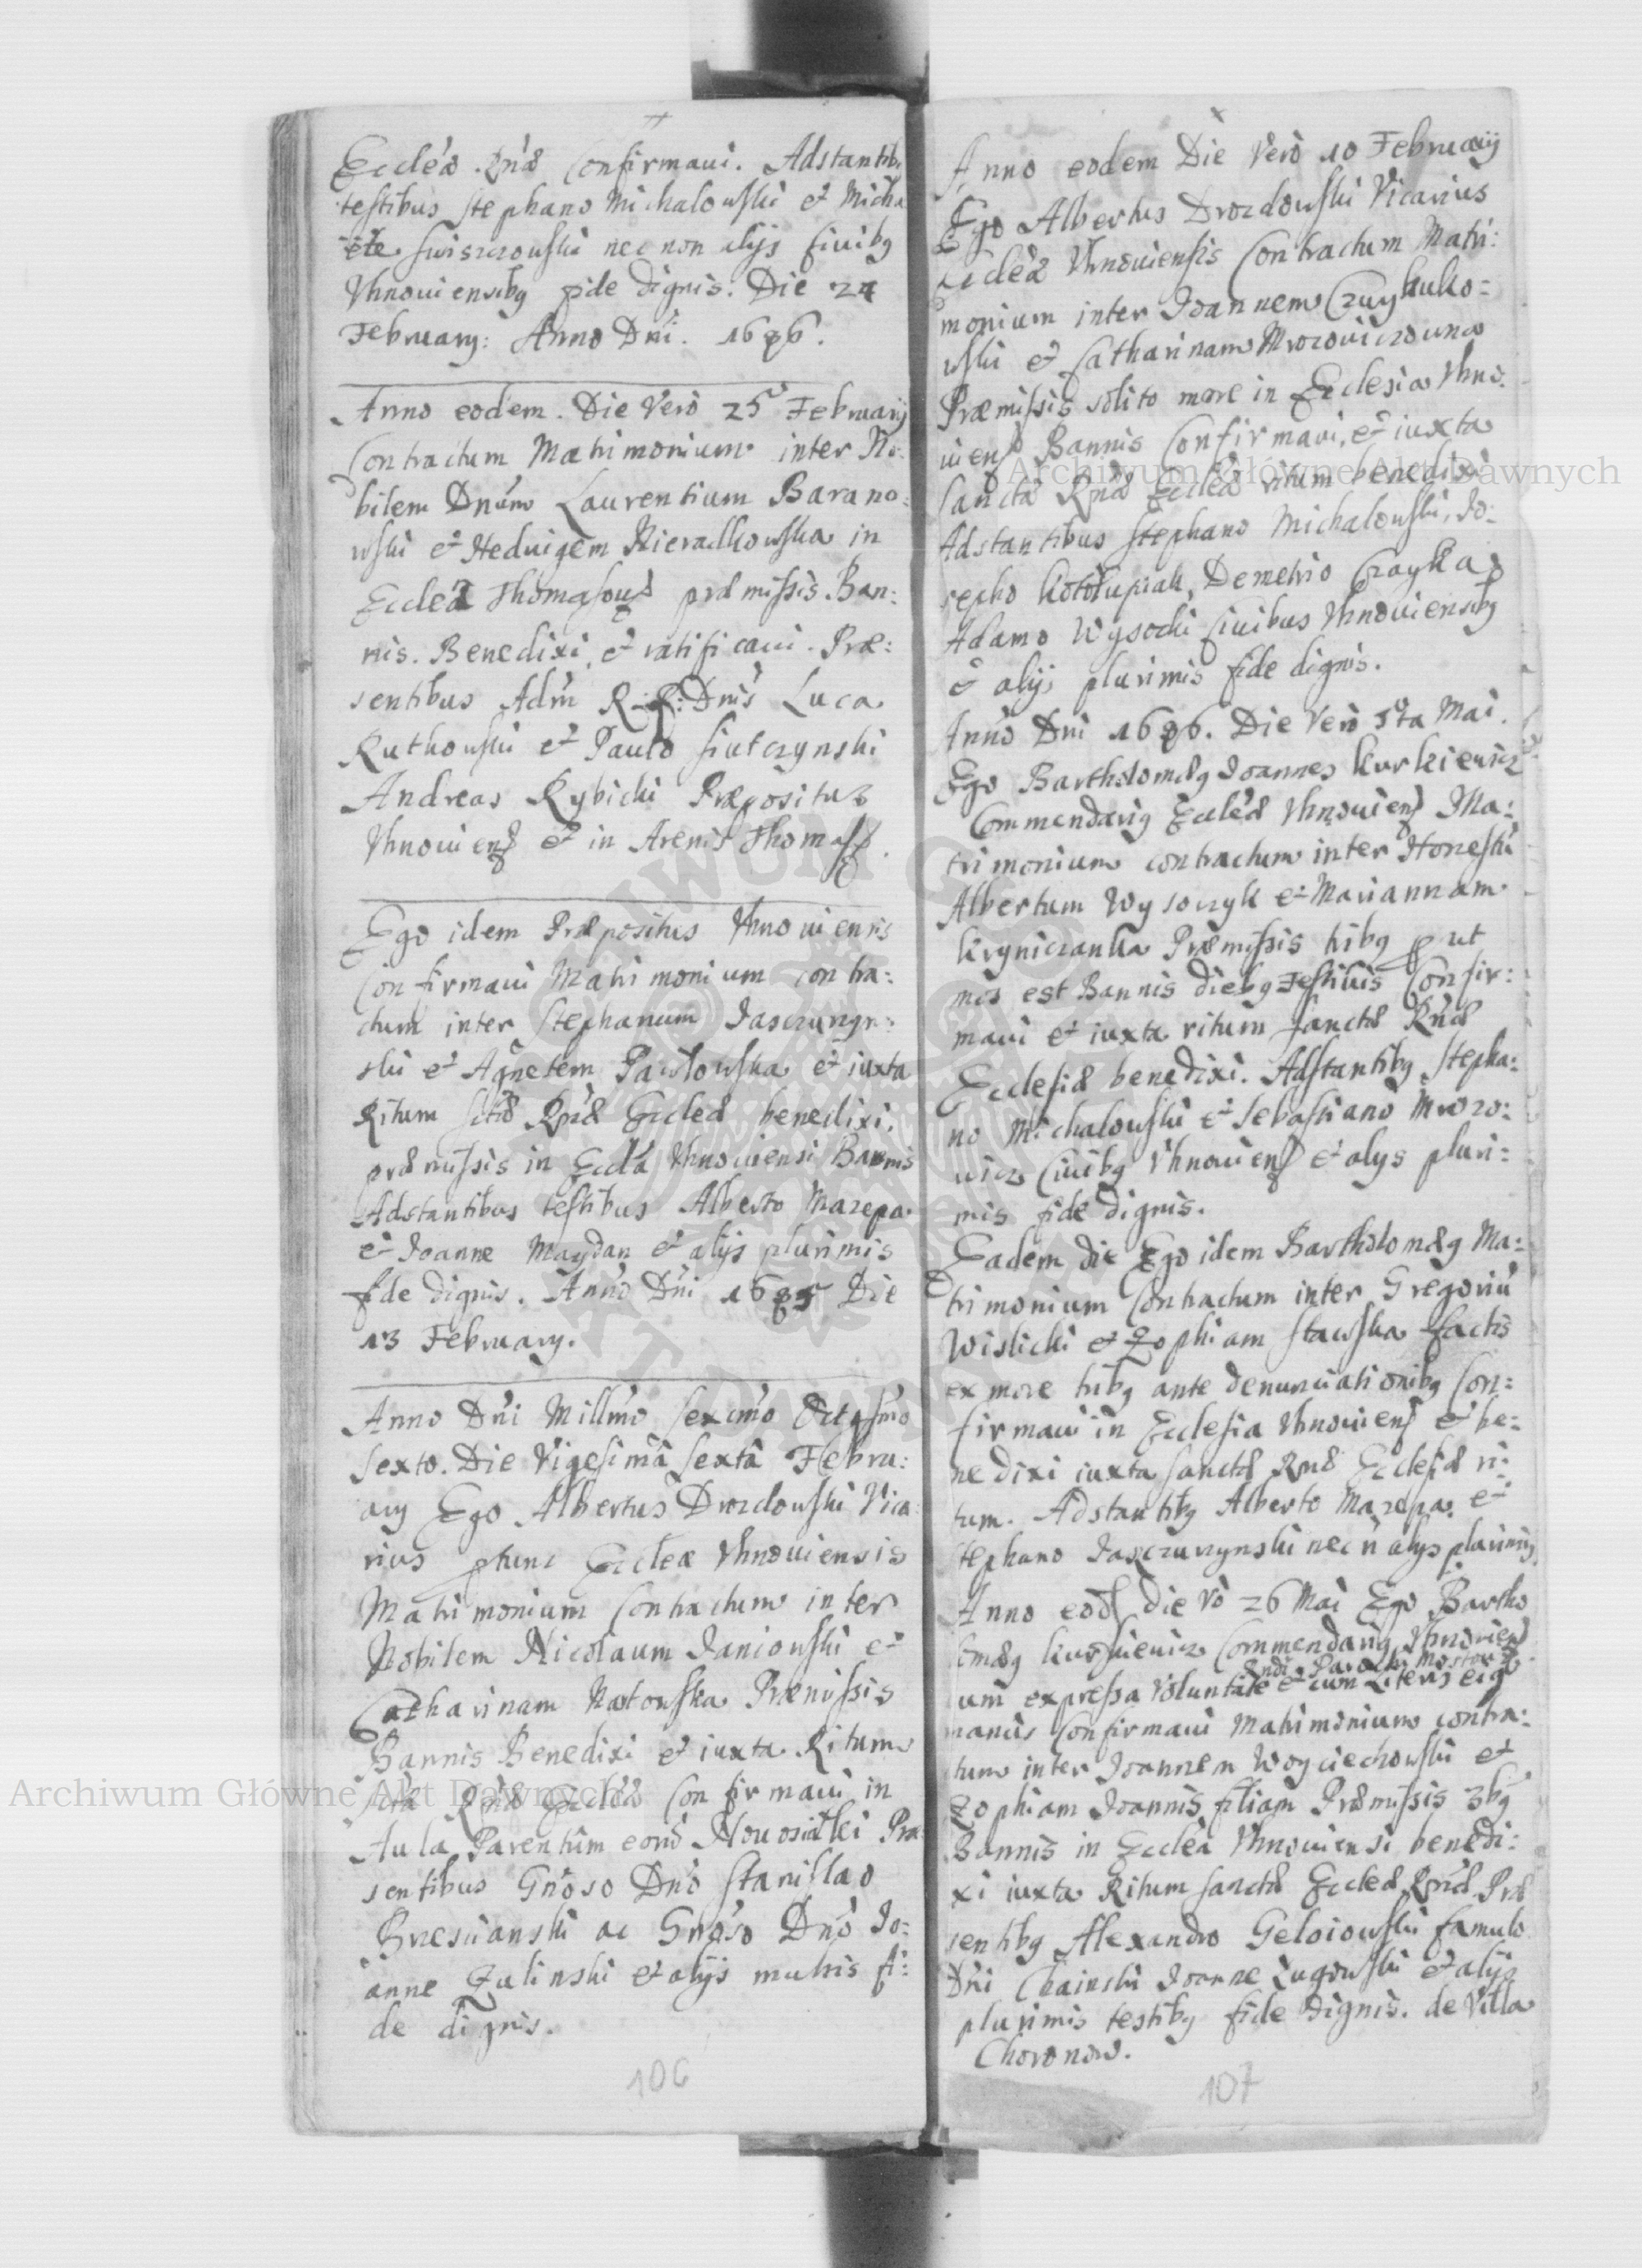 Eccleæ Rnæ Confirmavi. Adstantib9
testibus Stephano Michalowski et Micha
ele Swiszczowski nec non alijs Civib9
Vhnoviensib9 fide dignis. Die 24
February: Anno Dni. 1686.
Anno eodem. Die Vero 25 February
Contractum Matrimonium inter No:
bilem Dnum Laurentium Barano:
wski et Hedvigem Nieradkowska in
Ecclea Thomasov præmissis Ban:
nis. Benedixi, et ratificavi. Præ:
sentibus Adm R. P: Dnis Luca
Rutkowski et Paulo
Andreas Rybicki Præpositus
Vhnoviens et in Arenis Thomass.
Ego idem Præpositus Vhnoviensis
Confirmavi Matrimonium contra:
ctum inter Stephanum Jasczurzyn:
ski et Agnetem Pawlowska et iuxta
Ritum Sctæ Rnæ Eccleæ benedixi,
præmissis in Eccla Vhnoviensi Bannis
Adstantibus testibus Alberto Mazepa
et Joanne Maydan et alijs plurimis
fide dignis. Anno Dni 1685 Die
13 February.
Anno Dni Millmo Sexcmo Octgsmo
Sexto. Die Vigesima Sexta Febru:
ary Ego Albertus Drozdowski Vica
rius ptunc Eccleæ Vhnoviensis
Matrimonium Contractum inter
Nobilem Nicolaum Janiowski et
Catharinam Præmissis
Bannis Benedixi et iuxta Ritum
Sctæ Rnæ Eccleæ Confirmavi in
Aula Parentum eoru Novosiolki Præ
sentibus Gnoso Dno Stanislao
Brzesciański ac Gnoso Dno Jo:
anne Zulinski et alijs multis fi:
de dignis.
106
Anno eodem Die Vero 10 February
Ego Albertus Drozdowski Vicarius
Eccleæ Vhnoviensis Contractum Matri:
monium inter Joannem
wski et Catharinam Mrozoviczowna
Præmissis solito more in Ecclesia Vhno:
viens Bannis Confirmavi, et iuxta
Sanctæ Rnæ Eccleæ ritum benedixi
Adstantibus Stephano Michalowski, Jo:
sepho Demetrio Czayka
Adamo Wysocki Civibus Vhnoviensib9
et alijs plurimis fide dignis.
Anno Dni 1686. Die Vero 5ta Mai.
Ego Bartholomæ9 Joannes Kurkievicz
Commendari9 Eccleæ Vhnoviens Ma:
trimonium contractum inter Honestu
Albertum Wysoczyk et Mariannam
Kryniczanka Præmissis trib9 put
mos est Bannis dieb9 Festivis Confir:
mavi et iuxta ritum Sanctæ Rnæ
Ecclesiæ benedixi. Adstantib9 Stepha:
no Michalowski et Sebastiano Mrozo:
wicz Civib9 Vhnoviens et alys pluri:
mis fide dignis.
Eadem die Ego idem Bartholomæ9 Ma:
trimonium Contractum inter Gregoriu
Wislicki et Zophiam Stawska factis
ex more trib9 ante denunciationib9 Con:
firmavi in Ecclesia Vhnoviens et be:
nedixi iuxta Sanctæ Rnæ Ecclesiæ ri:
tum. Adstantib9 Alberto Mazepa et
Stephano Jasczurzynski nec n alys plurimis
Anno eod die vo 26 Mai Ego Bartho
lomæ9 Kurkievicz Commendari9 Vhnoviens
Rndi Parochi
um expressa voluntate et cum Literis ei9
manus Confirmavi Matrimonium contra:
ctum inter Joannem Woyciechowski et
Zophiam Joannis filiam Præmissis 3b9
Bannis in Ecclea Vhnoviensi benedi:
xi iuxta Ritum Sanctæ Eccleæ Rnæ Præ
sentib9 Alexandro famulo
Dni Joanne Lugowski et alijs
plurimis testib9 fide dignis. de Villa
Choronow.
107
Archiwum Główne Akt Dawnych
Archiwum Główne Akt Dawnych